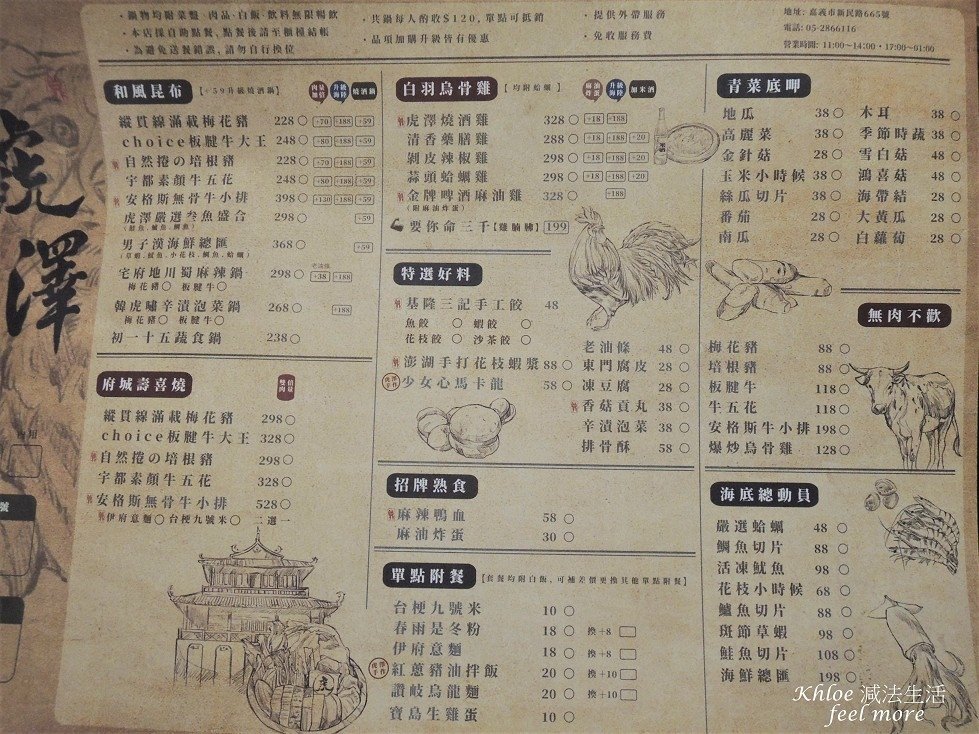 ·鍋物均附菜盤·肉品·白飯·飲料無限暢飲
·本店採自助點餐，點餐後請至櫃檯結帳
·為避免送餐錯誤，請勿自行換位
·共鍋每人酌收$120，單點可抵銷
·品項加購升級皆有優惠
·提供外帶服務
·免收服務費
地址: 嘉義市新民路665號
電話: 05-2866116
營業時間: 11:00~14:00·17:00~01:00
虎澤
和風昆布 [+59升級燒酒鍋] 肉量加倍 升級海陸 燒酒鍋
縱貫線滿載梅花豬 228 +70 +188 +59
choice板腱牛大王 248 +80 +188 +59
自然捲の培根豬 228 +70 +188 +59
宇都素顏牛五花 248 +80 +188 +59
安格斯無骨牛小排 398 +130 +188 +59
虎澤嚴選叁魚盛合 298 +59
(鮭魚,鱸魚,鯛魚)
男子漢海鮮總匯 368 +59
(草蝦,魷魚,小花枝,鯛魚,蛤蠣)
宅府地川蜀麻辣鍋 298 老油條 +38 +188
梅花豬 板腱牛
韓虎嘯辛漬泡菜鍋 268 +188
梅花豬 板腱牛
初一十五蔬食鍋 238
府城壽喜燒 雙倍肉量
縱貫線滿載梅花豬 298
choice板腱牛大王 328
自然捲の培根豬 298
宇都素顏牛五花 328
安格斯無骨牛小排 528
伊府意麵 台梗九號米 二選一
白羽烏骨雞 [均附蛤蠣] 麻油炸蛋 升級海陸 加米酒
虎澤燒酒雞 328 +18 +188
清香藥膳雞 288 +18 +188 +20
剝皮辣椒雞 298 +18 +188 +20
蒜頭蛤蠣雞 298 +18 +188 +20
金牌啤酒麻油雞 328 +188
(附麻油炸蛋)
要你命三千[雞腩腖] 199
特選好料
基隆三記手工餃 48
魚餃 蝦餃
花枝餃 沙茶餃
澎湖手打花枝蝦漿 88
少女心馬卡龍 58
老油條 48
東門腐皮 28
凍豆腐 28
香菇貢丸 38
辛漬泡菜 38
排骨酥 58
招牌熟食
麻辣鴨血 58
麻油炸蛋 30
單點附餐 [套餐均附白飯，可補差價更換其他單點附餐]
台梗九號米 10
春雨是冬粉 18 換+8
伊府意麵 18 換+8
紅蔥豬油拌飯 20 換+10
讚岐烏龍麵 20 換+10
寶島生雞蛋 10
青菜底呷
地瓜 38 木耳 38
高麗菜 38 季節時蔬 38
金針菇 28 雪白菇 48
玉米小時候 38 鴻喜菇 48
絲瓜切片 38 海帶結 28
番茄 28 大黃瓜 28
南瓜 28 白蘿蔔 28
無肉不歡
梅花豬 88
培根豬 88
板腱牛 118
牛五花 118
安格斯牛小排 198
爆炒烏骨雞 128
海底總動員
嚴選蛤蠣 48
鯛魚切片 88
活凍魷魚 98
花枝小時候 68
鱸魚切片 88
斑節草蝦 98
鮭魚切片 108
海鮮總匯 198
Khloe 減法生活
feel more